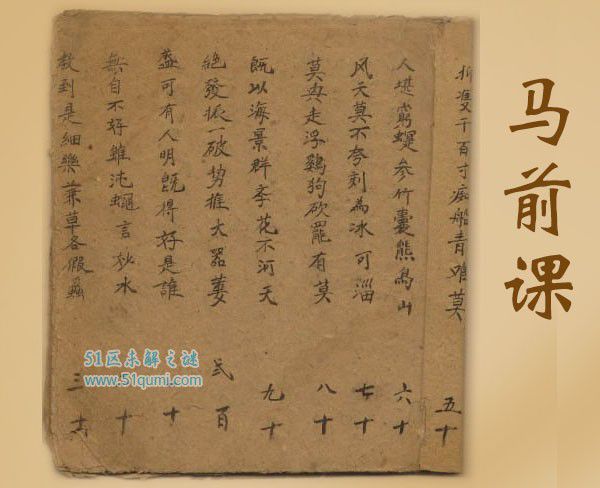 马前课
千百寸船青难莫 五十
人堪窮參竹囊熊鳥山 六十
风天莫不夸刺為冰可淄 七十
莫與走浮鷄狗砍罷有莫 八十
既以海景群季花不河天 九十
絕發振一破势推大器萋 弐百
盖可有人明既得好是誰 十
無自不好雖沌言秋水 十
到是細樂兼草各假 三
51区未解之谜
www.51qumi.com